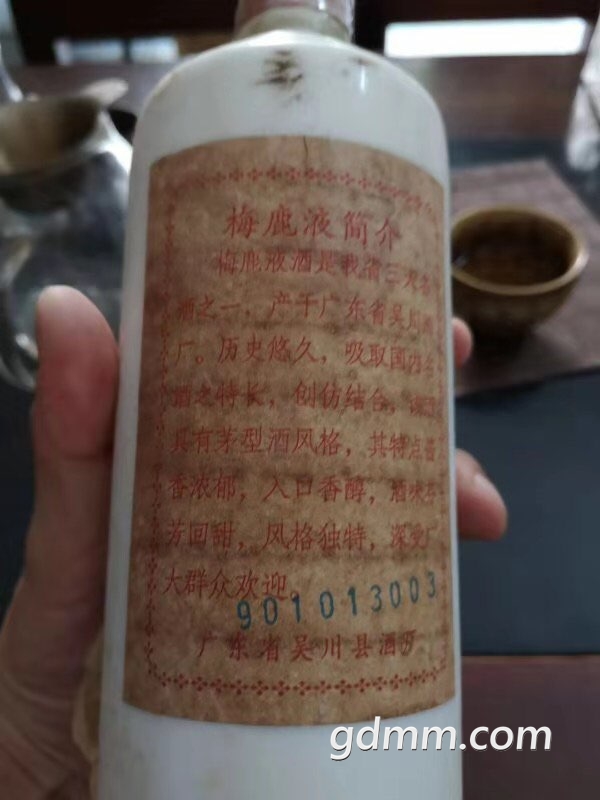 梅鹿液简介
梅鹿液酒是我省三大名
酒之一，产于广东省吴川
厂。历史悠久，吸取国内名
酒之特长，创仿结合，
具有茅型酒风格，其特点
香浓郁，入口香醇，酒味
芳回甜，风格独特，深受广
大群众欢迎。
901013003
广东省吴川县酒厂
gdmm.com